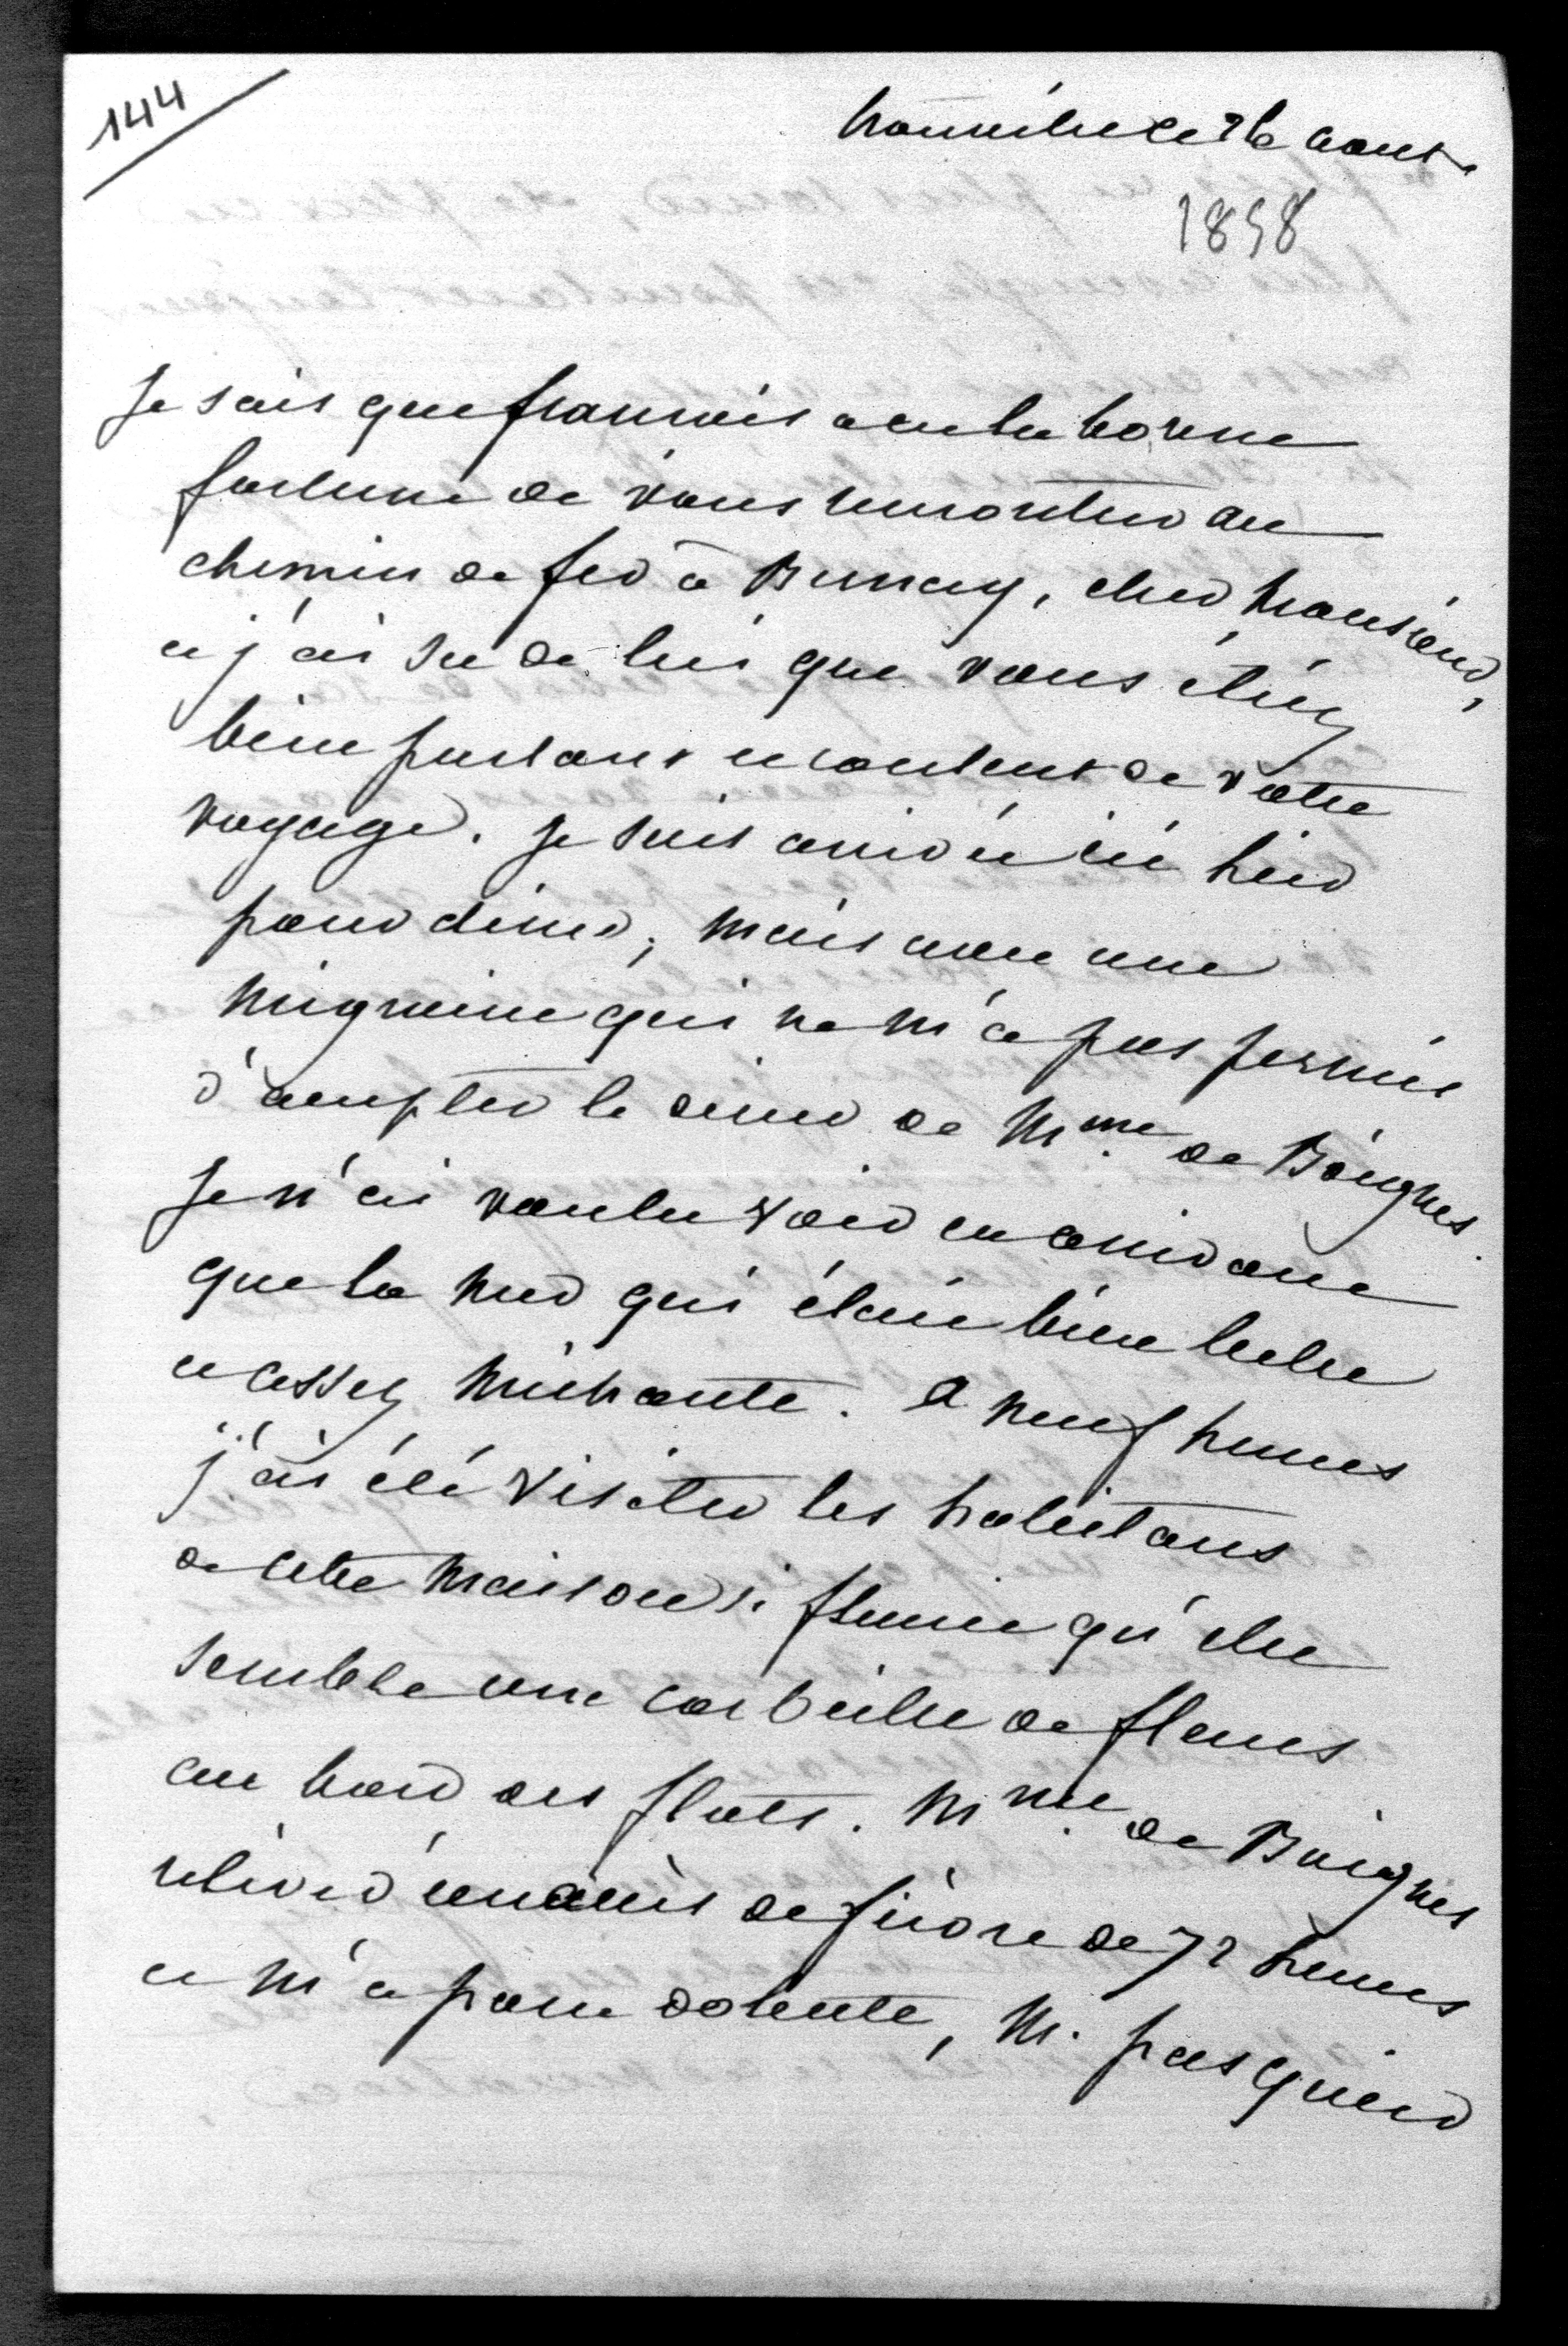 144
Trouville ce 26 aout
1858
Je sais que françois a eu la bonne
fortune de vous rencontrer au
chemin de fer à Bernay, cher Monsieur,
et j'ai su de lui que vous étiez
bien portant et content de votre
voyage. Je suis arrivée ici hier
pour diner, mais avec une
migraine qui ne m'a pas permis
d'accepter le diner de Mme de Boignes.
Je n'ai voulu voir en arrivant
que la mer qui était bien belle
et assez méchante. A neuf heures
j'ai été visiter les habitans
de cette maison si fleurie qu'elle
semble une corbeille de fleurs
au bord des flots. Mme de Boignes
relève d'un accès de fièvre de 72 heures
et m'a paru dolente, M. pasquier